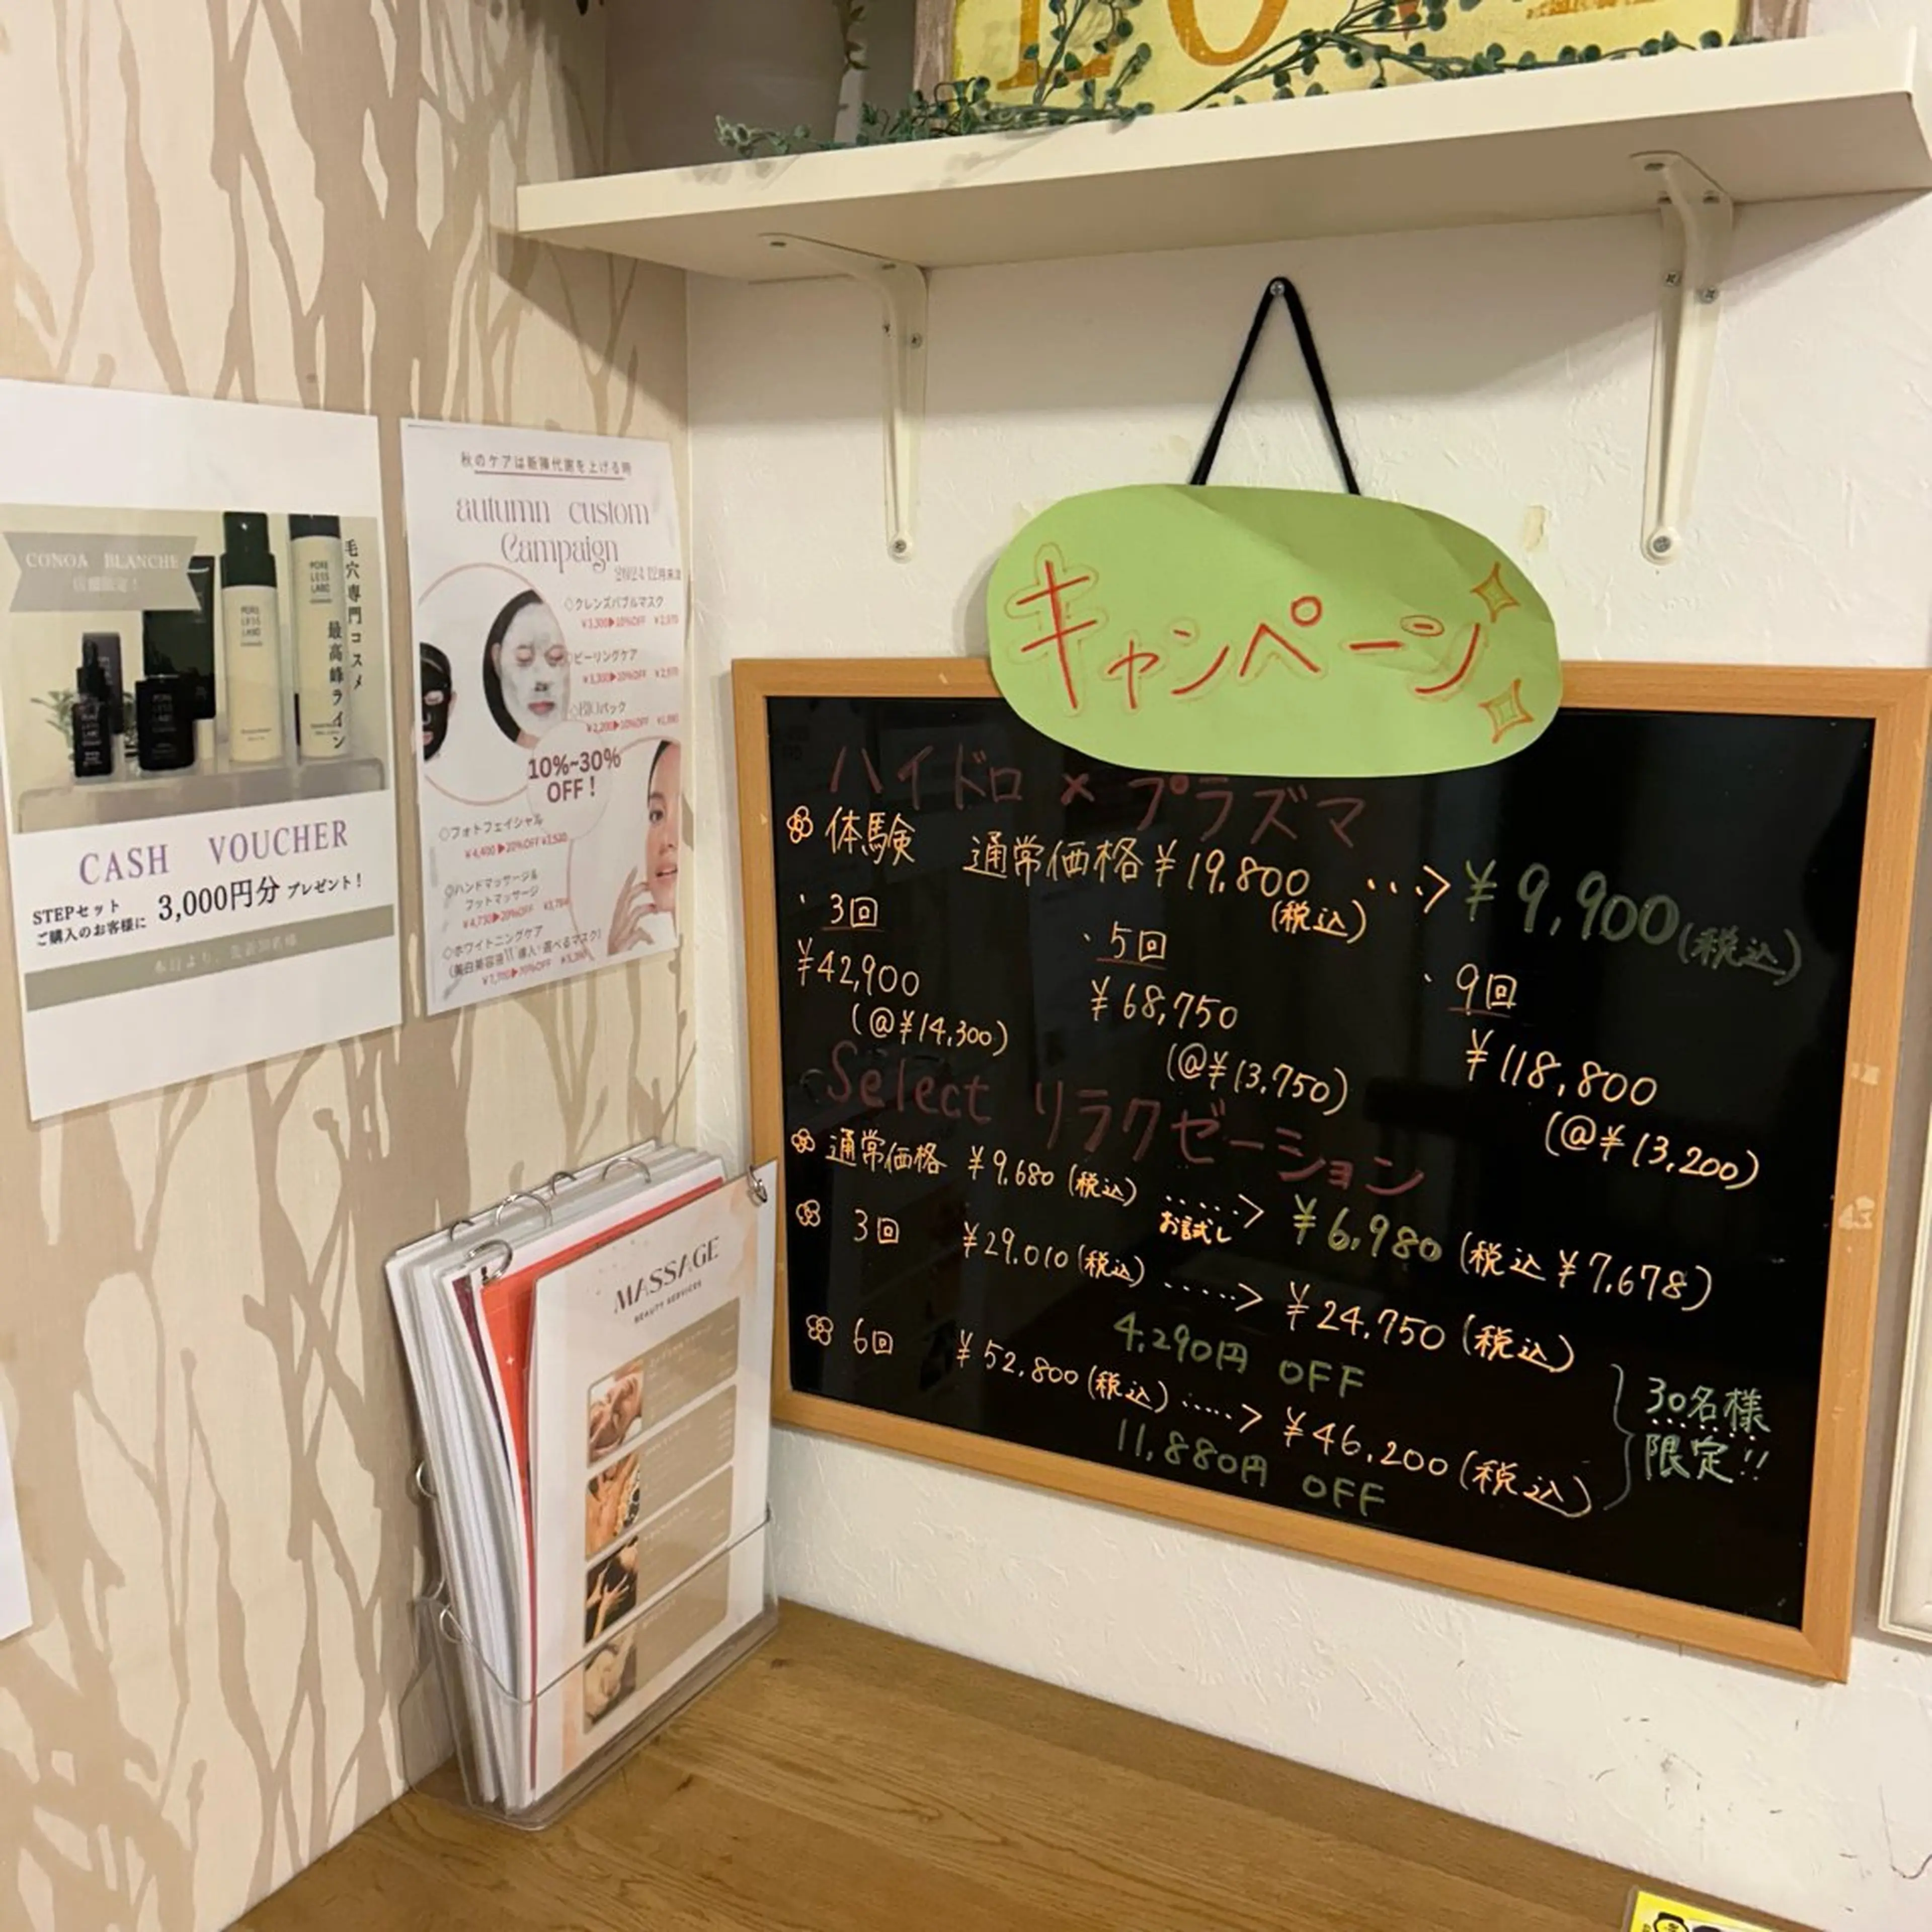 CONOA BLANCHE
店舗限定！
毛穴専門コスメ
最高峰ライン
PORE
LESS
LABO
CASH VOUCHER
STEPセット
ご購入のお客様に 3,000円分 プレゼント！
本日より、先着30名様
秋のケアは新陳代謝を上げる時
autumn custom
Campaign
2024 12月末迄
◇クレンズバブルマスク
¥3,300▶10%OFF ¥2,970
◇ピーリングケア
¥3,300▶10%OFF ¥2,970
◇BIOパック
¥2,200▶10%OFF ¥1,980
10%~30%
OFF！
◇フォトフェイシャル
¥4,400▶20%OFF ¥3,520
◇ハンドマッサージ&
フットマッサージ
¥4,730▶20%OFF ¥3,784
◇ホワイトニングケア
MASSAGE
BEAUTY SERVICES
キャンペーン
ハイドロ×プラズマ
体験 通常価格¥19,800(税込) ･･･> ¥9,900(税込)
・3回
¥42,900
(@¥14,300)
・5回
¥68,750
(@¥13,750)
・9回
¥118,800
(@¥13,200)
Select リラクゼーション
通常価格 ¥9,680(税込) ･････> ¥6,980(税込¥7,678)
お試し
3回 ¥29,010(税込) ･････> ¥24,750(税込)
4,290円 OFF
6回 ¥52,800(税込) ･････> ¥46,200(税込)
11,880円 OFF
30名様
限定!!